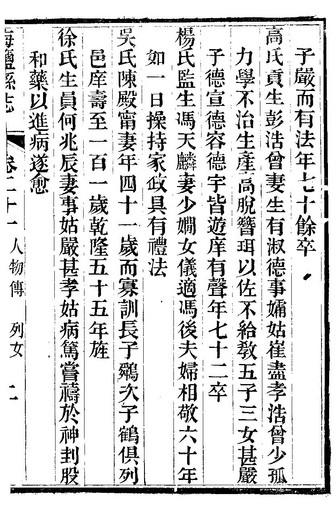 子嚴而有法年七十餘卒
高氏貢生彭浩曾妻生有淑德事孀姑崔盡孝浩曾少孤
力學不治生產高脫簪珥以佐不給教五子三女甚嚴
子德宣德容德宇皆遊庠有聲年七十二卒
楊氏監生馮天麟妻少嫺女儀適馮後夫婦相敬六十年
如一日操持家政具有禮法
吳氏陳殿甯妻年四十一歲而寡訓長子鵷次子鶴俱列
邑庠壽至一百一歲乾隆五十五年旌
徐氏生員何兆辰妻事姑嚴甚孝姑病篤嘗禱於神刲股
和藥以進病遂愈
海鹽縣志 卷二十一 人物傳 列女 二